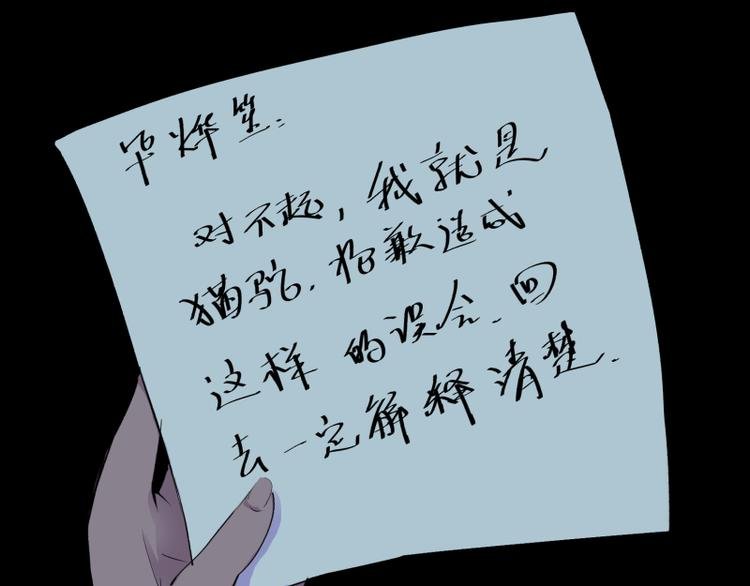 毕烨笙：
对不起，我就是
猫驼．抱歉造成
这样的误会．回
去一定解释清楚．